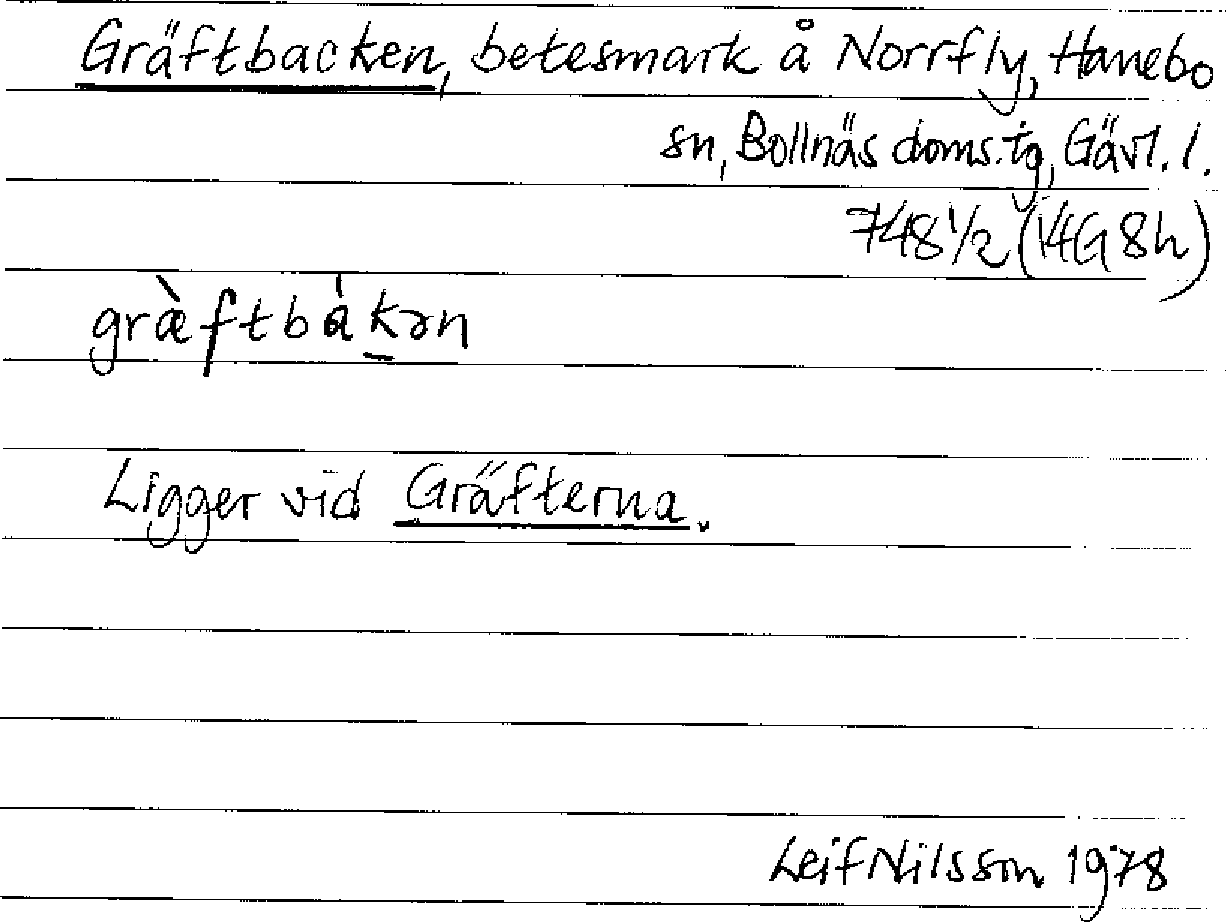 Gräftbacken, betesmark å Norrfly, Hanebo
sn, Bollnäs doms.tg, Gävl. l.
748 1/2 (14G 8h)
græ̀ftbàkən
Ligger vid Gräfterna.
Leif Nilsson 1978